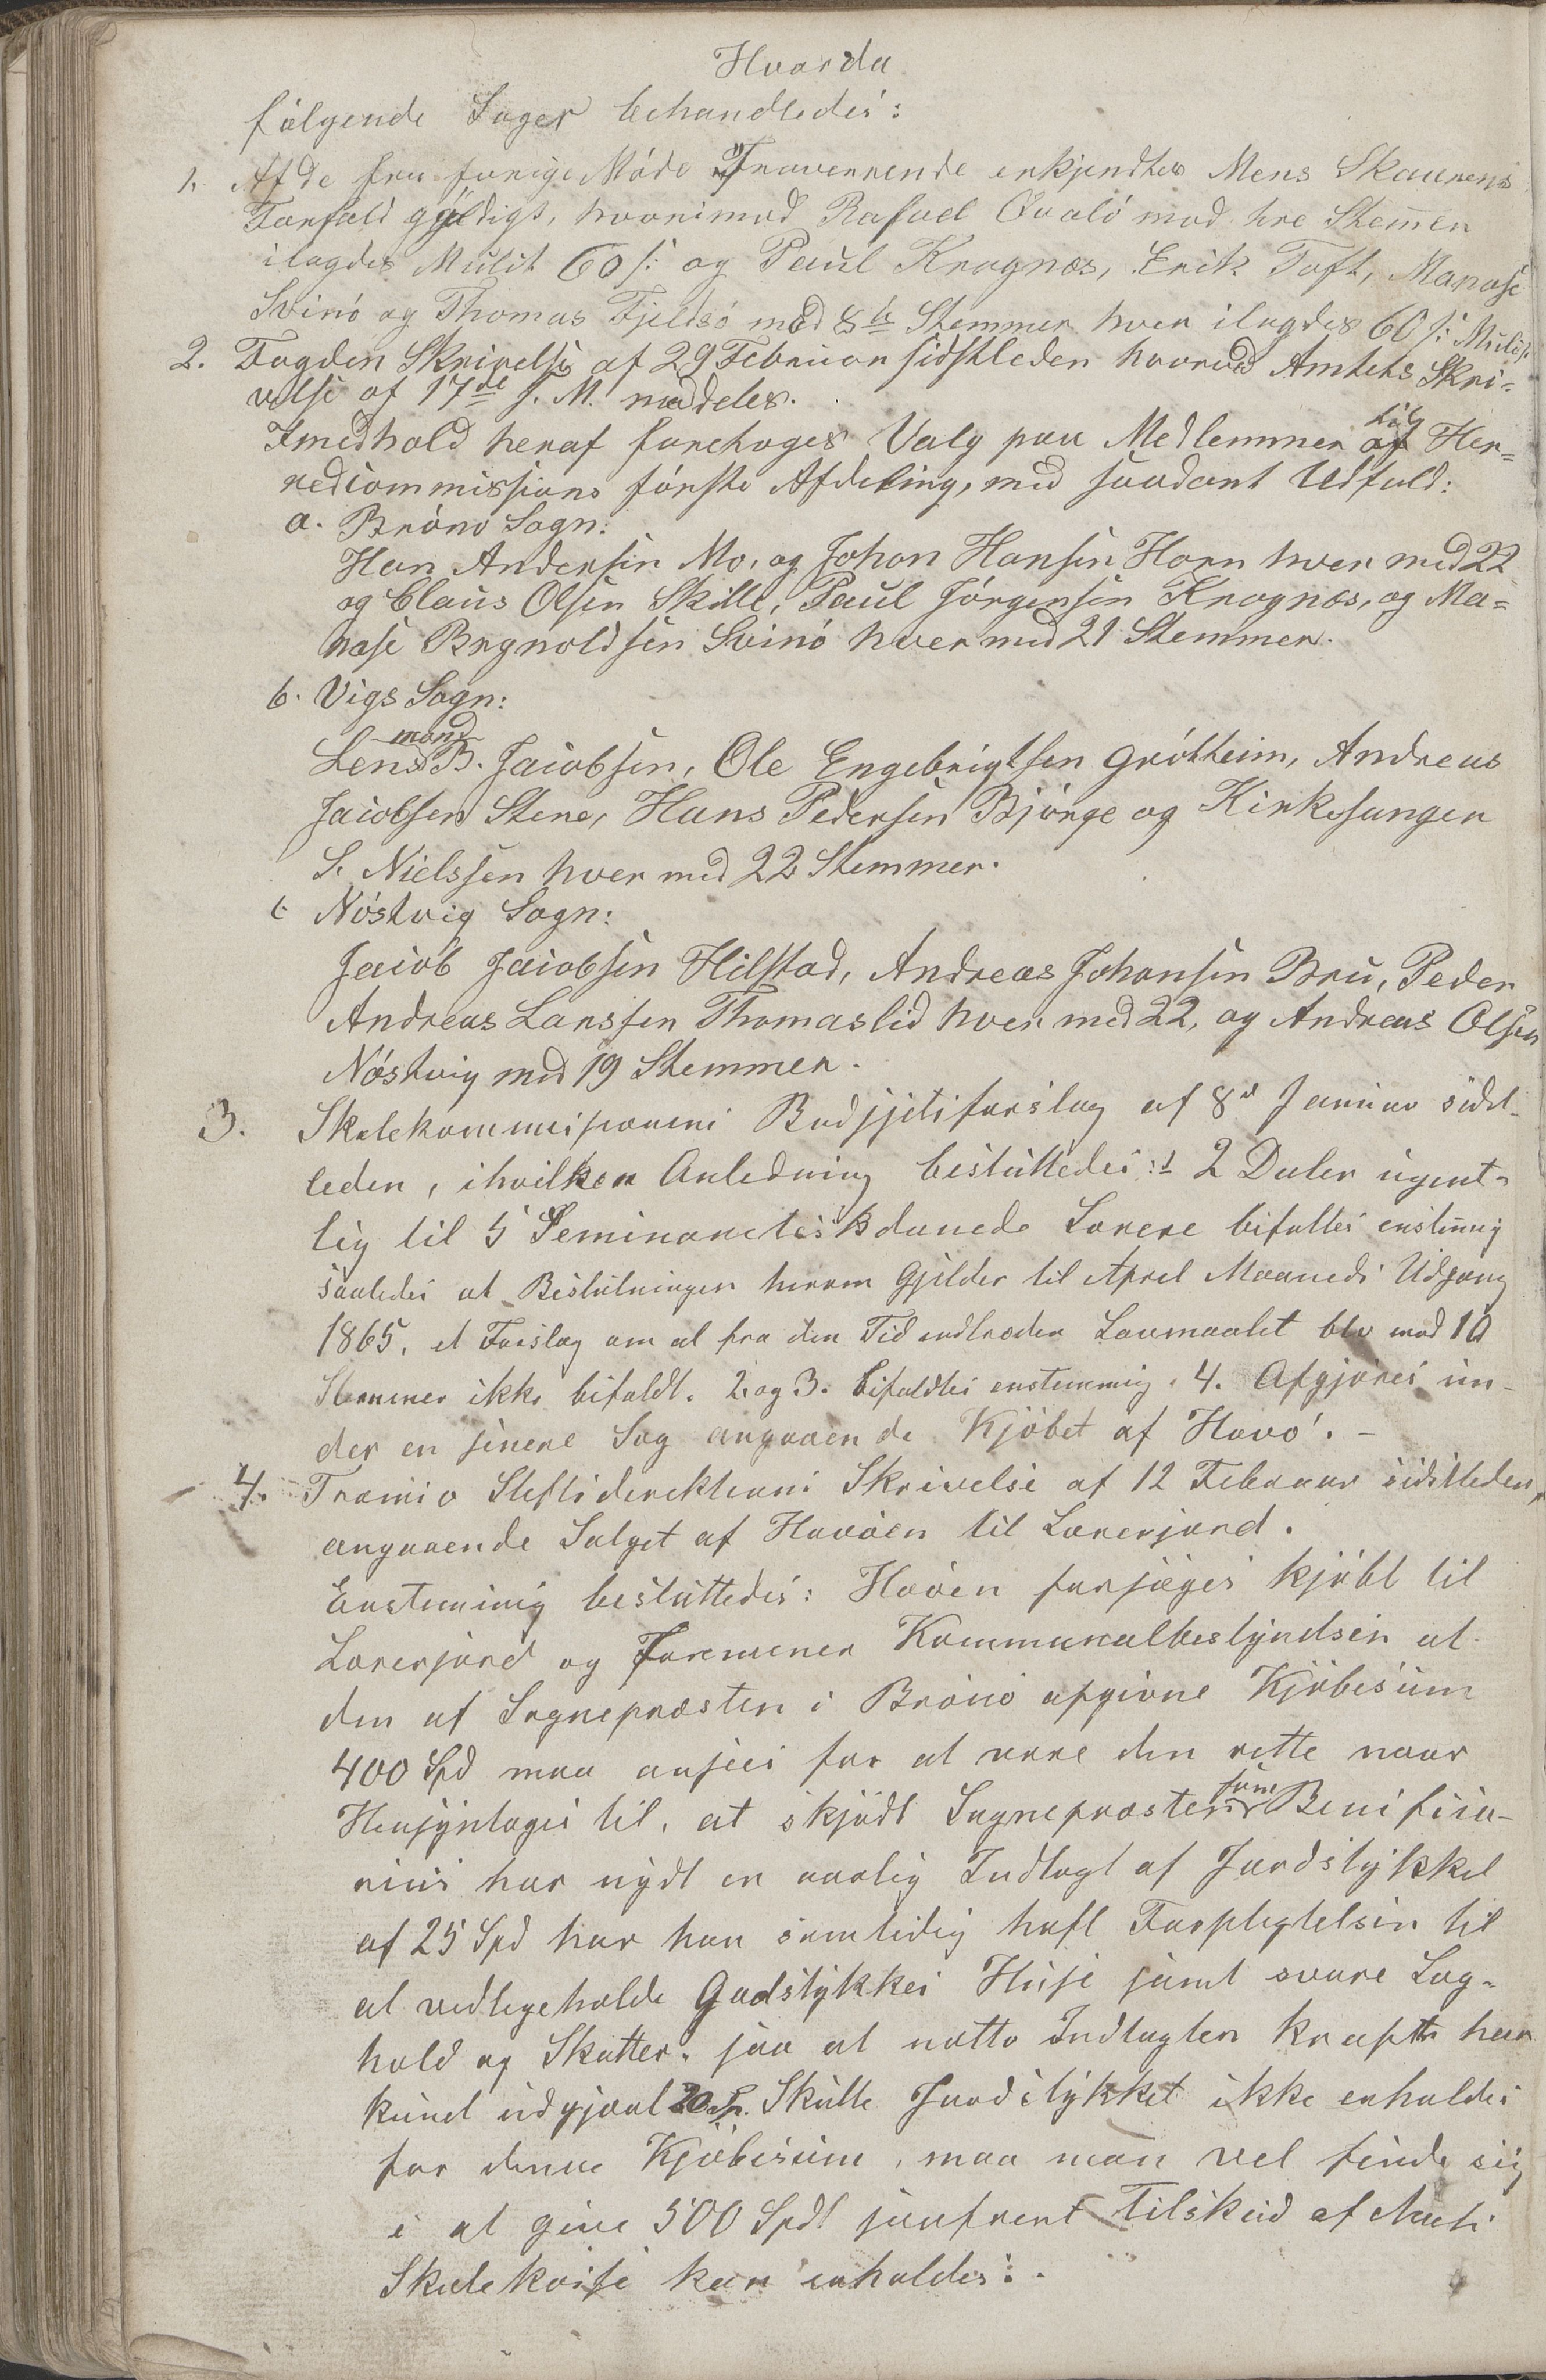 Hvorda
følgende Sager behandledes:
1. Af de fra forrige Møde Fraværende erkjendtes Mons Skaurens
Forfald gyldigt, hvorimod Rafael Qvalø mod tre Stemmer
ilagdes Mulct 60 s: og Paul Kragnæs, Erik Toft, Manase
Svinø og Thomas Fjeldsø med 8te Stemmer hver ilagdes 60 s: Mulct
2. Fogden Skrivelse af 29 Februar sidstleden hvorved Amtets Skri=
velse af 17de s. M. meddeles.
I medhold heraf foretoges Valg paa Medlemmer af til Her=
redscommissions første Afdeling, med saadant Udfald:
a. Brønø Sogn:
Han Andersen Mo, og Johan Hansen Horn hver med 22
og Claus Olsen Skille, Paul Jørgensen Kragnæs, og Ma=
nase Brynoldsen Svinø hver med 21 Stemmer.
b. Vigs Sogn:
Lensmand B. Jacobsen, Ole Engebrigtsen Grøttheim, Andreas
Jacobsen Stene, Hans Pedersen Bjørge og Kirkesanger
S. Nielssen hver med 22 Stemmer.
c Nøstvig Sogn:
Jacob Jacobsen Hilstad, Andreas Johansen Bru, Peder
Andreas Larssen Thomaslid hver med 22, og Andreas Olsen
Nøstvig med 19 Stemmer.
3. Skolekommissionens Budjetsforslag af 8d Januar sidst-
leden, i hvilken Anledning besluttedes: 1 2 Daler ugent-
lig til 5 Seminaristisk danede Lærere bifaltes enstemmig
saaledes at Beslutningen herom Gjelder til April Maaneds Udgang
1865, et Forslag om at fra den Tid indtræder Lavmaalet blev med 10
Stemmer ikke bifaldt. 2 og 3. bifaldtes enstemmig. 4. Afgjøres un-
der en senere Sag angaaende Kjøbet af Havø. -
4. Tromsø Stiftsdirektions Skrivelse af 12 Februar sidstleden,
angaaende Salget af Havøen til Lærerjord.
Enstemmig besluttedes: Havøen forsøges kjøbt til
Lærerjord og Formener Kommunalbestyrelsen at
den af Sognepræsten i Brønø opgivne Kjøbesum
400 Spd maa ansees for at være den rette naar
Hensyntages til, at skjødt Sognepræsten som Benificia-
rius har nydt en aarlig Indtægt af Jordstykket
af 25 Spd har han samtidig havt Forpligtelsen til
at vedligeholde Gadstykkes Huse samt svare Lag-
hold og Skatter. saa at netto Indtægten knapt har
kunet udgjort 20 Sp. Skulle Jordstykket ikke erholdes
for denne Kjøbesum, maa man vel finde sig
i at give 500 Spd saafremt Tilskud af Amts
Skolekasse kan erholdes.